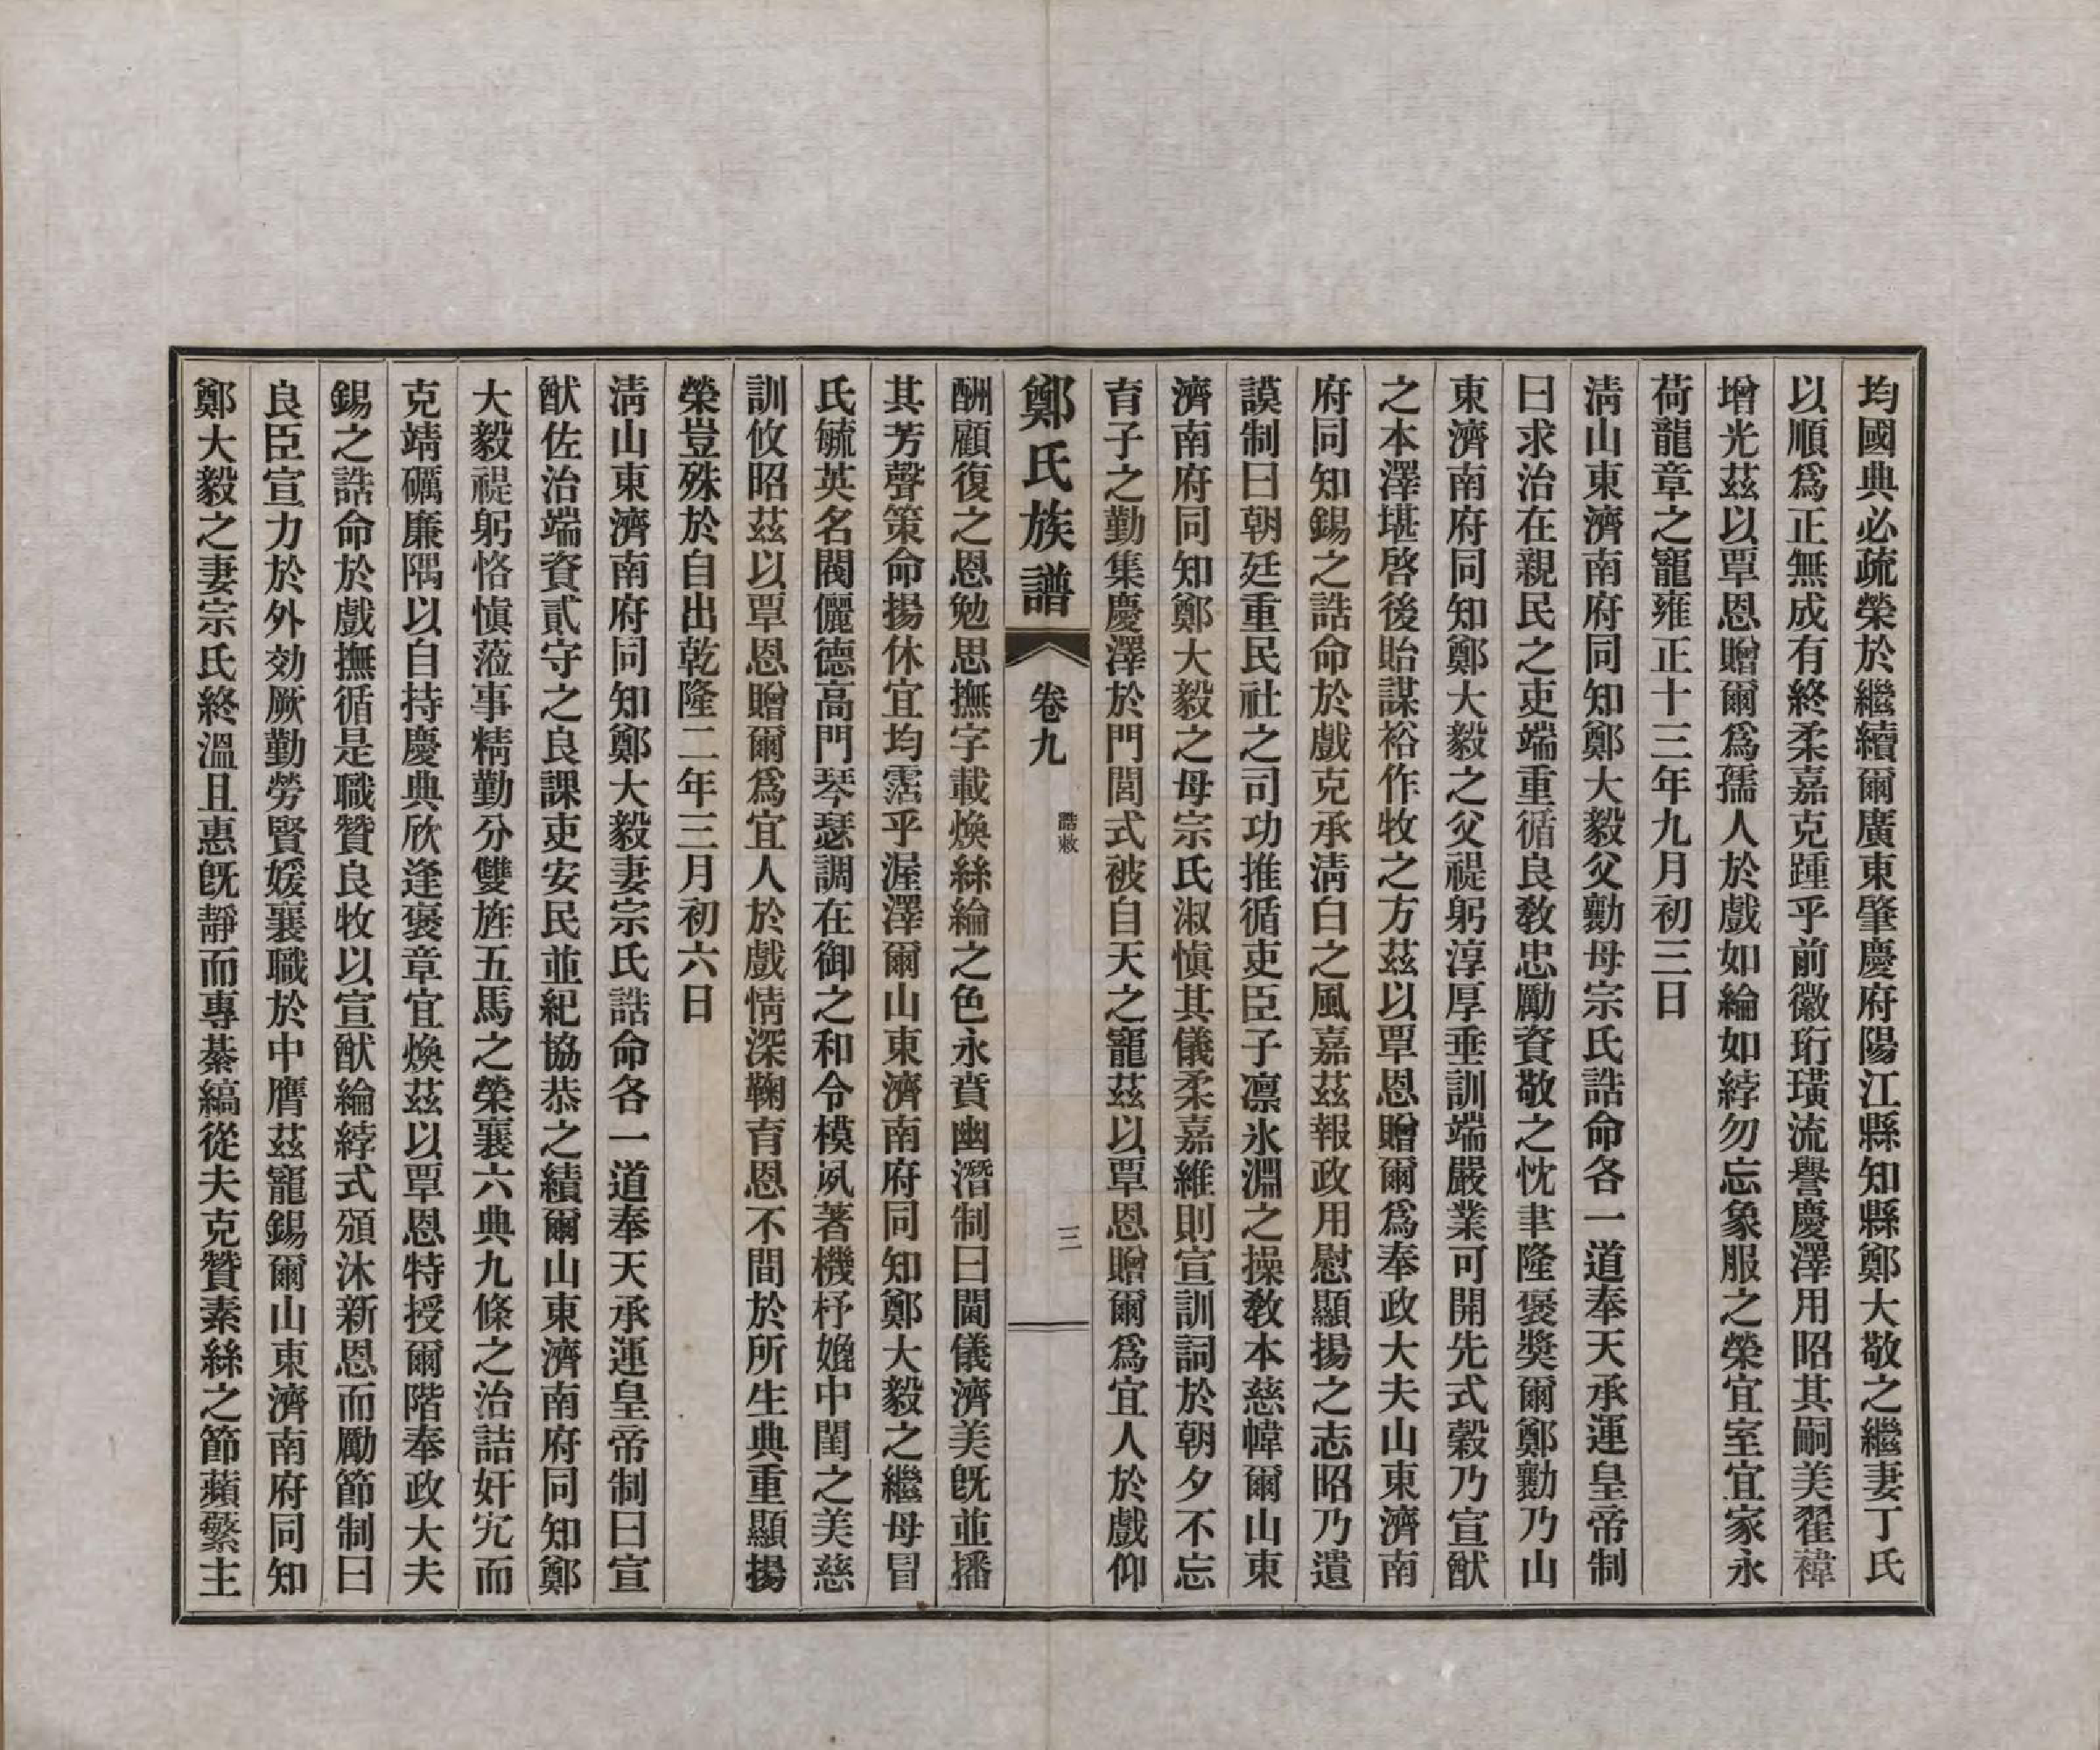 均國典必疏榮於繼續爾廣東肇慶府陽江縣知縣鄭大敬之繼妻丁氏
以順爲正無成有終柔嘉克踵乎前徽珩璜流譽慶澤用昭其嗣美翟褘
增光茲以覃恩贈爾爲孺人於戲如綸如綍勿忘象服之榮宜室宜家永
荷龍章之寵雍正十三年九月初三日
淸山東濟南府同知鄭大毅父勷母宗氏誥命各一道奉天承運皇帝制
曰求治在親民之吏端重循良敎忠勵資敬之忱聿隆褒獎爾鄭勷乃山
東濟南府同知鄭大毅之父禔躬淳厚垂訓端嚴業可開先式穀乃宣猷
之本澤堪啓後貽謀裕作牧之方茲以覃恩贈爾爲奉政大夫山東濟南
府同知錫之誥命於戲克承淸白之風嘉茲報政用慰顯揚之志昭乃遺
謨制曰朝廷重民社之司功推循吏臣子凛氷淵之操敎本慈幃爾山東
濟南府同知鄭大毅之母宗氏淑愼其儀柔嘉維則宣訓詞於朝夕不忘
育子之勤集慶澤於門閭式被自天之寵茲以覃恩贈爾爲宜人於戲仰
鄭氏族譜 卷九 誥敕 三
酬顧復之恩勉思撫字載煥絲綸之色永賁幽潛制曰閫儀濟美旣並播
其芳聲策命揚休宜均霑乎渥澤爾山東濟南府同知鄭大毅之繼母冒
氏毓英名閥儷德高門琴瑟調在御之和令模夙著機杼嫓中閨之美慈
訓攸昭茲以覃恩贈爾爲宜人於戲情深鞠育恩不間於所生典重顯揚
榮豈殊於自出乾隆二年三月初六日
淸山東濟南府同知鄭大毅妻宗氏誥命各一道奉天承運皇帝制曰宣
猷佐治端資貳守之良課吏安民並紀協恭之績爾山東濟南府同知鄭
大毅禔躬恪愼蒞事精勤分雙旌五馬之榮襄六典九條之治詰奸宄而
克靖礪廉隅以自持慶典欣逢褒章宜煥茲以覃恩特授爾階奉政大夫
錫之誥命於戲撫循是職贊良牧以宣猷綸綍式頒沐新恩而勵節制曰
良臣宣力於外効厥勤勞賢媛襄職於中膺茲寵錫爾山東濟南府同知
鄭大毅之妻宗氏終溫且惠旣靜而專綦縞從夫克贊素絲之節蘋蘩主